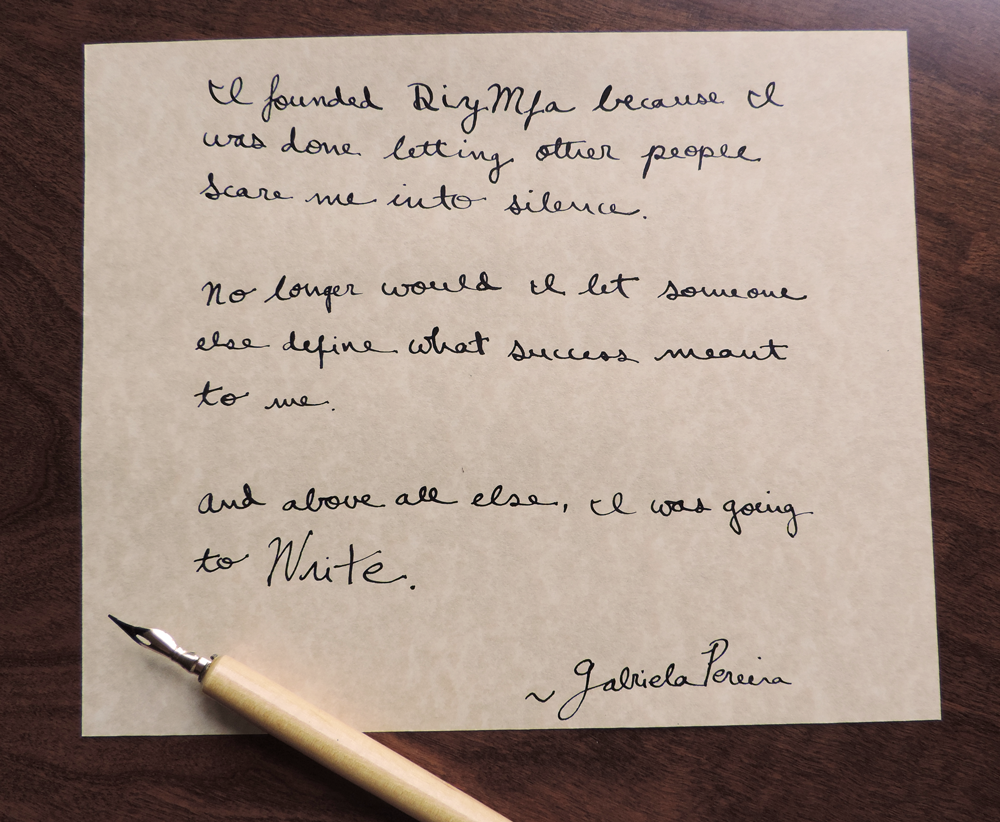 I founded DiyMfa because I
was done letting other people
scare me into silence.
No longer would I let someone
else define what success meant
to me.
And above all else, I was going
to Write.
~ Gabriela Pereira